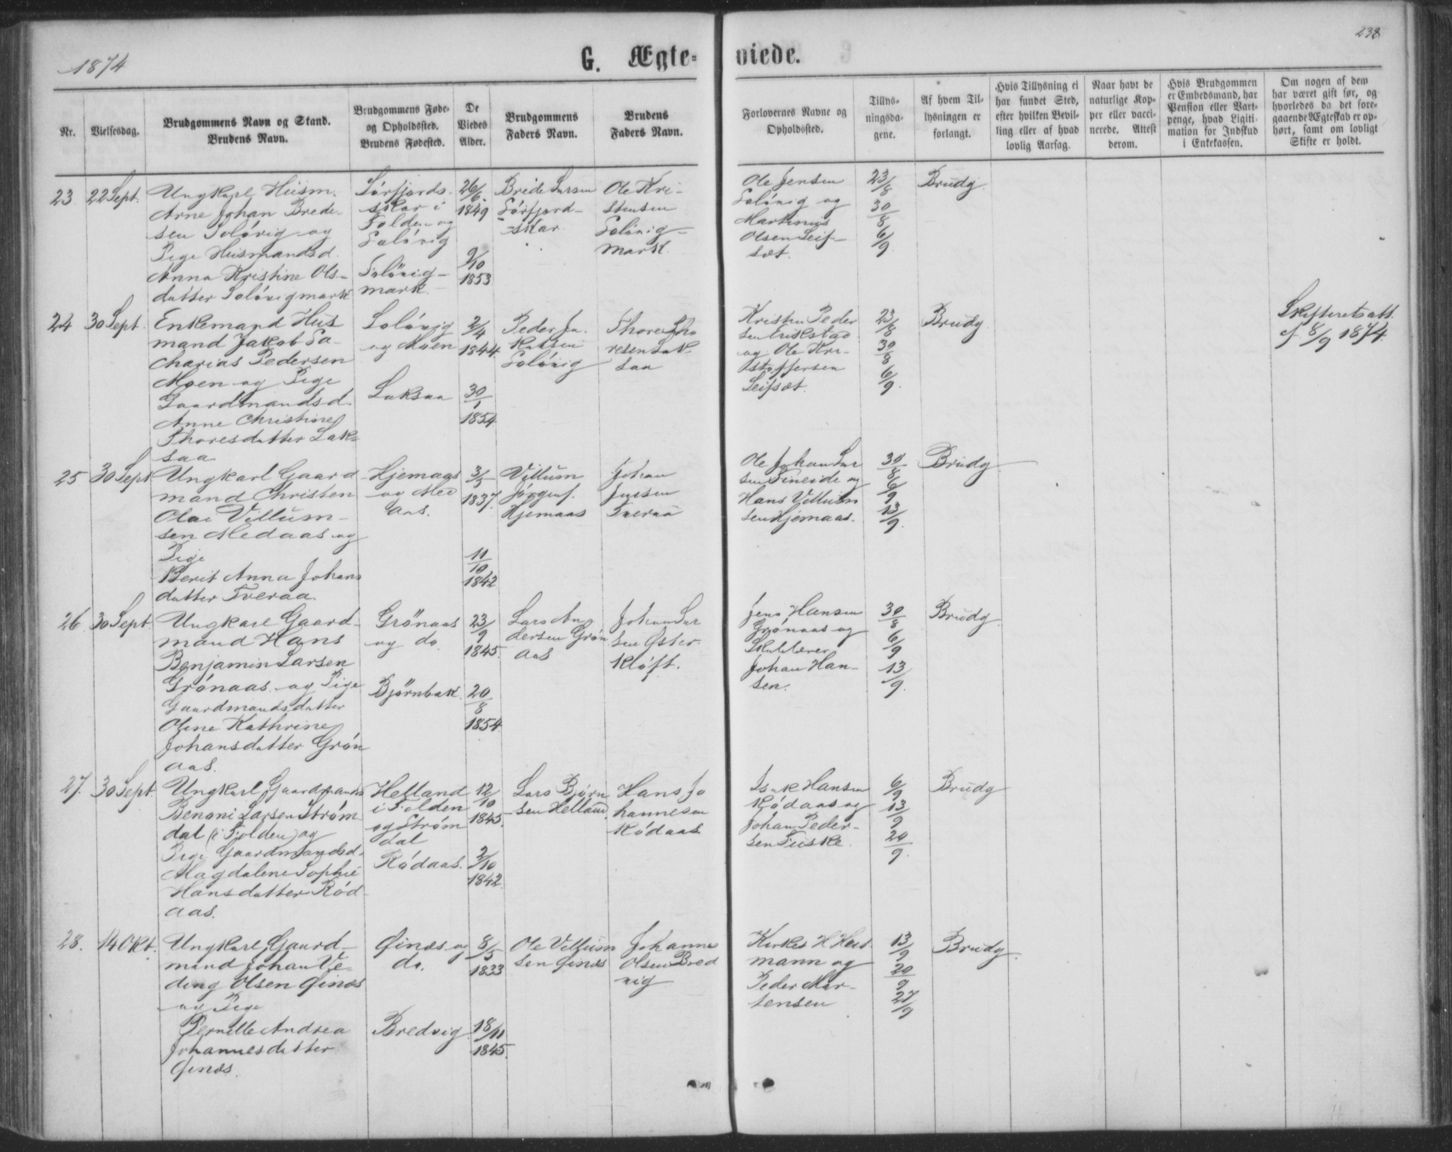 1874
G. Ægte-
viede.
238
Nr.
Vielsesdag.
Brudgommens Navn og Stand.
Brudens Navn.
Brudgommens Føde-
og Opholdssted.
Brudens Fødested.
De
Viedes
Alder.
Brudgommens
Faders Navn.
Brudens
Faders Navn.
Forlovernes Navne og
Opholdssted.
Tillys-
ningsda-
gene.
Af hvem Til-
lysningen er
forlangt.
Hvis Tillysning ei
har fundet Sted,
efter hvilken Bevil-
ling eller af hvad
lovlig Aarsag.
Naar havt de
naturlige Kop-
per eller vacci-
nerede. Attest
derom.
Hvis Brudgommen
er Embedsmand, har
Pension eller Vart-
penge, hvad Ligiti-
mation for Indskud
i Enkekassen.
Om nogen af dem
har været gift før, og
hvorledes da det fore-
gaaende Ægteskab er op-
hørt, samt om lovligt
Skifte er holdt.
23
22 Sept.
Ungkarl Husm.
Arne Johan Brede-
sen Soløvig og
Pige Husmandsd.
Anna Kristine Ols-
datter Soløvigmark
Sørfjords-
skar i
Folden og
Soløvig
Soløvig-
mark
26/6.
1849
9/10
1853
Brede Larsen
Sørfjord-
skar
Ole Kri-
stensen
Soløvig-
mark.
Ole Jensen
Soløvig og
Markus
Olsen Leif-
sæt.
23/8
30/8
6/9
Brudg
24
30 Sept.
Enkemand Hus
mand Jakob Za-
charias Pedersen
Moen og Pige
Gaardmandsd.
Anne Christine
Thoresdatter Lak-
saa
Soløvig
og Moen
Laksaa
2/4
1844
30/1
1854
Peder
Soløvig
Thore Tho
resen Lak-
saa
Kristen Peder
sen Erikstad
og Ole Kri-
stoffersen
Leifsæt.
23/8
30/8
6/9
Brudg
Skifteretsatt.
af 8/9 1874.
25
30 Sept
Ungkarl Gaard
mand Christen
Olai Villum-
sen Medaas og
Pige
Berit Anna Johans
datter Tveraa
Hjemaas
og Med
aas.
3/5
1837.
11/10
1842
Villum
Hjemaas
Johan
Jensen
Tveraa
Ole Johan Lar
sen Fineide og
Hans Villum
sen Hjemaas.
30/8
6/9
13/9
Brudg
26
30 Sept
Ungkarl Gaard-
mand Hans
Benjamin Larsen
Grønaas og Pige
Gaardmandsdatter
Oline Kathrine
Johansdatter Grøn
aas.
Grønaas
og do.
Bjørnbak
23/9
1845.
20/8
1854
Lars An
dersen Grøn
aas
Johan Lar
sen Øster-
kløft.
Jens Hansen
Grønaas og
Skolelærer
Johan Han-
sen.
30/8
6/9
13/9
Brudg
27.
30 Sept.
Ungkarl Gaardmands
Benoni Larsen Strøm
dal (i Folden) og
Pige Gaardmandsd.
Magdalene Sophie
Hansdatter Rød-
aas.
Helland
i Folden
og Strøm
dal
Rødaas.
12/10
1845.
2/10
1842
Lars Bjørn
sen Helland
Hans Jo
hannesen
Rødaas
Isak Hansen
Rødaas og
Johan Peder-
sen Fuske.
6/9
13/9
20/9
Brudg
28.
14 Okt.
Ungkarl Gaard-
mand Johan Ve-
ding Olsen Øinæs
og Pige
Pernille Andrea
Johannesdatter
Øinæs.
Øinæs og
do.
Bredvig
8/5
1833
18/11
1845.
Ole Villum
sen Øinæs
Johannes
Olsen Bred
vig
mann og
Peder Mar-
tensen
13/9
20/9
27/9
Brudg